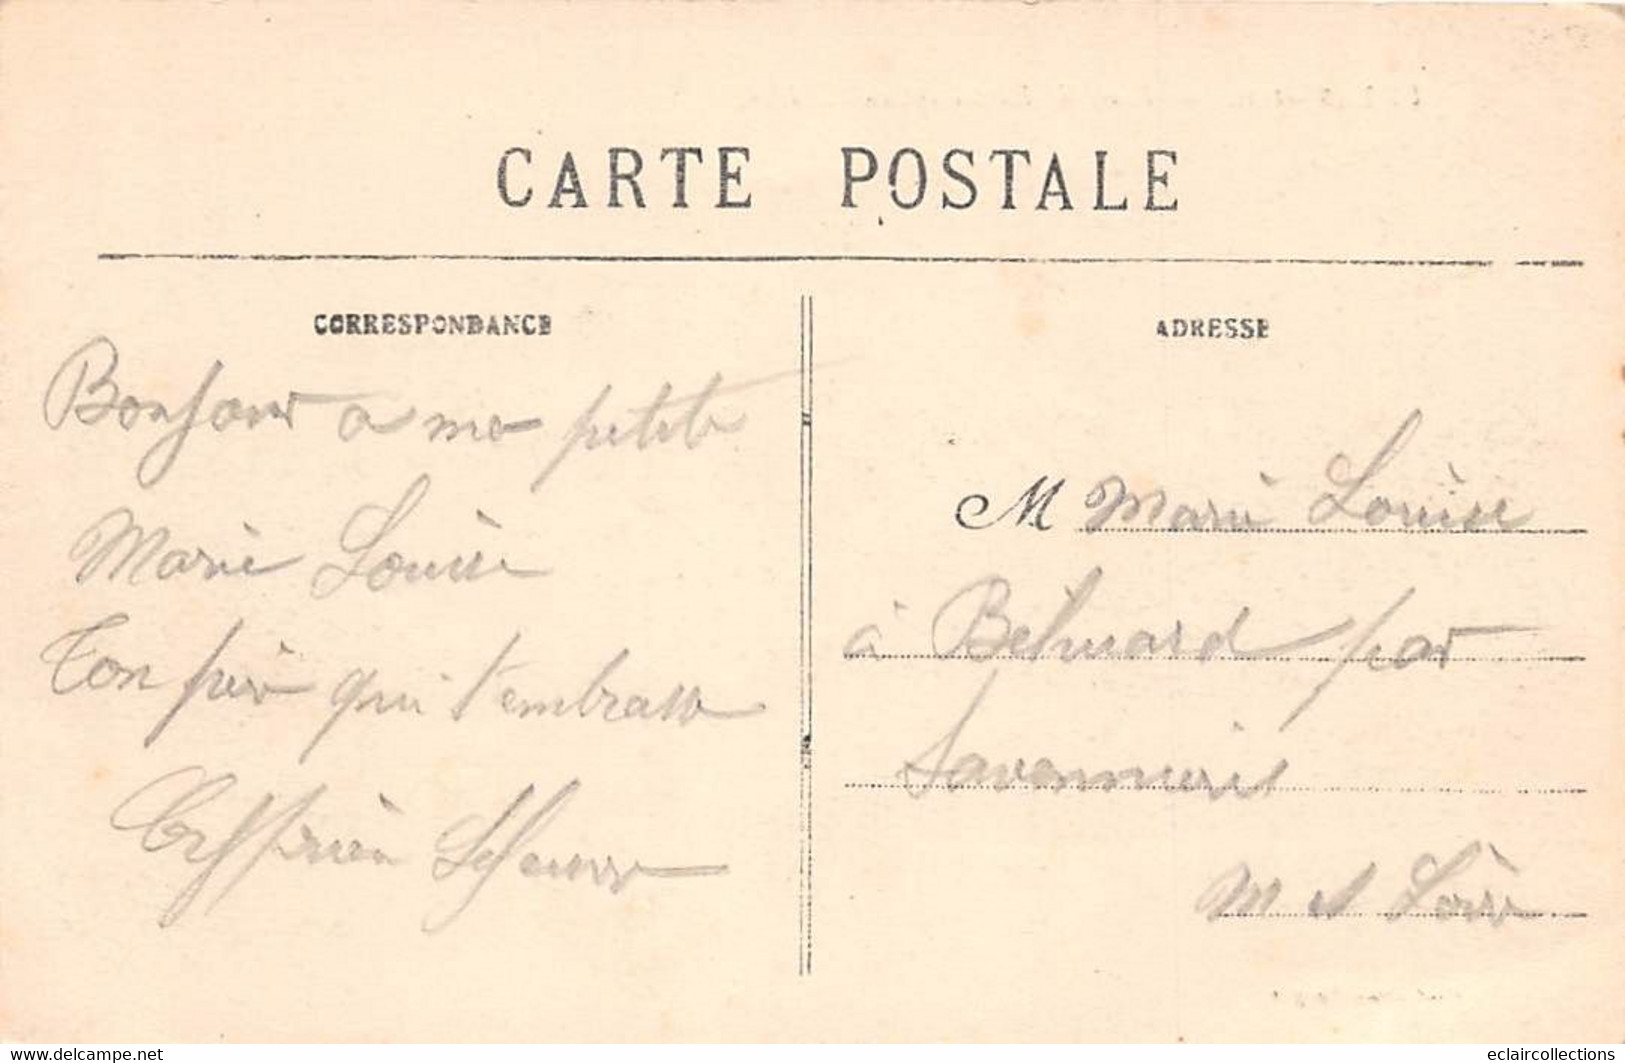 CARTE POSTALE
CORRESPONDANCE
ADRESSE
Bonjour a ma petite
Marie Louise
Ton père qui t'embrasse
M Marie Louise
à Béhuard par
Savennières
M et Loire
www.delcampe.net
eclaircollections